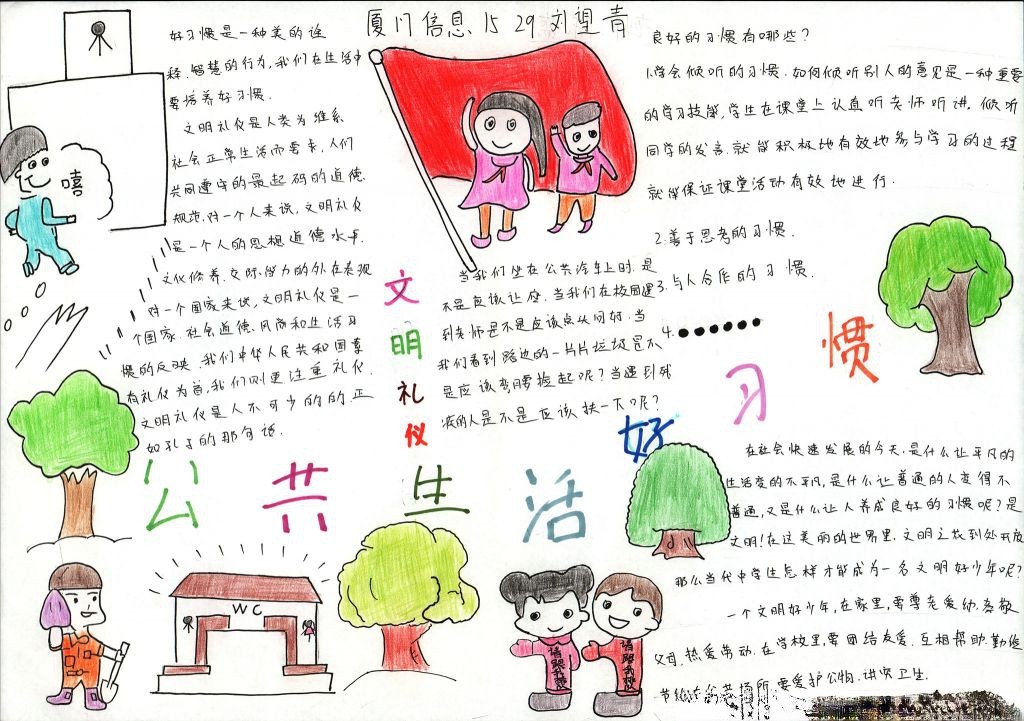 厦门信息 15 29 刘望青
好习惯是一种美的诠
释.智慧的行为,我们在生活中
要培养好习惯.
文明礼仪是人类为维系
社会正常生活而要素,人们
共同遵守的最起码的道德.
规范.对一个人来说,文明礼仪
是一个人的思想道德水平.
文化修养.交际能力的外在表现
对一个国家来说,文明礼仪是一
个国家.社会道德.风尚和生活习
惯的反映.我们中华人民共和国尊
有礼仪为首,我们则更注重礼仪.
文明礼仪是人不可少的的.正
如孔子的那句话.
嘻
文明礼仪
当我们坐在公共汽车上时.是
不是应该让座.当我们在校园遇
到老师是不是应该点头问好.当
我们看到路边的一片片垃圾是不
是应该弯腰捡起呢?当遇到残
疾的人是不是应该扶一下呢?
良好的习惯有哪些?
1.学会倾听的习惯.如何倾听别人的意见是一种重要
的学习技能,学生在课堂上认真听老师听讲.倾听
同学的发言.就能积极地有效地参与学习的过程
就能保证课堂活动有效地进行.
2.善于思考的习惯.
3.与人合作的习惯.
4.●●●●●●
公共生活好习惯
在社会快速发展的今天.是什么让平凡的
生活变的不平凡,是什么让普通的人变得不
普通,又是什么让人养成良好的习惯呢?是
文明!在这美丽的世界里.文明之花到处开放
那么当代中学生怎样才能成为一名文明好少年呢?
一个文明好少年,在家里,要尊老爱幼.孝敬
父母.热爱劳动.在学校里要团结友爱.互相帮助.勤俭
节约.在公共场所要爱护公物.讲究卫生.
WC
请跟我做
请跟我做